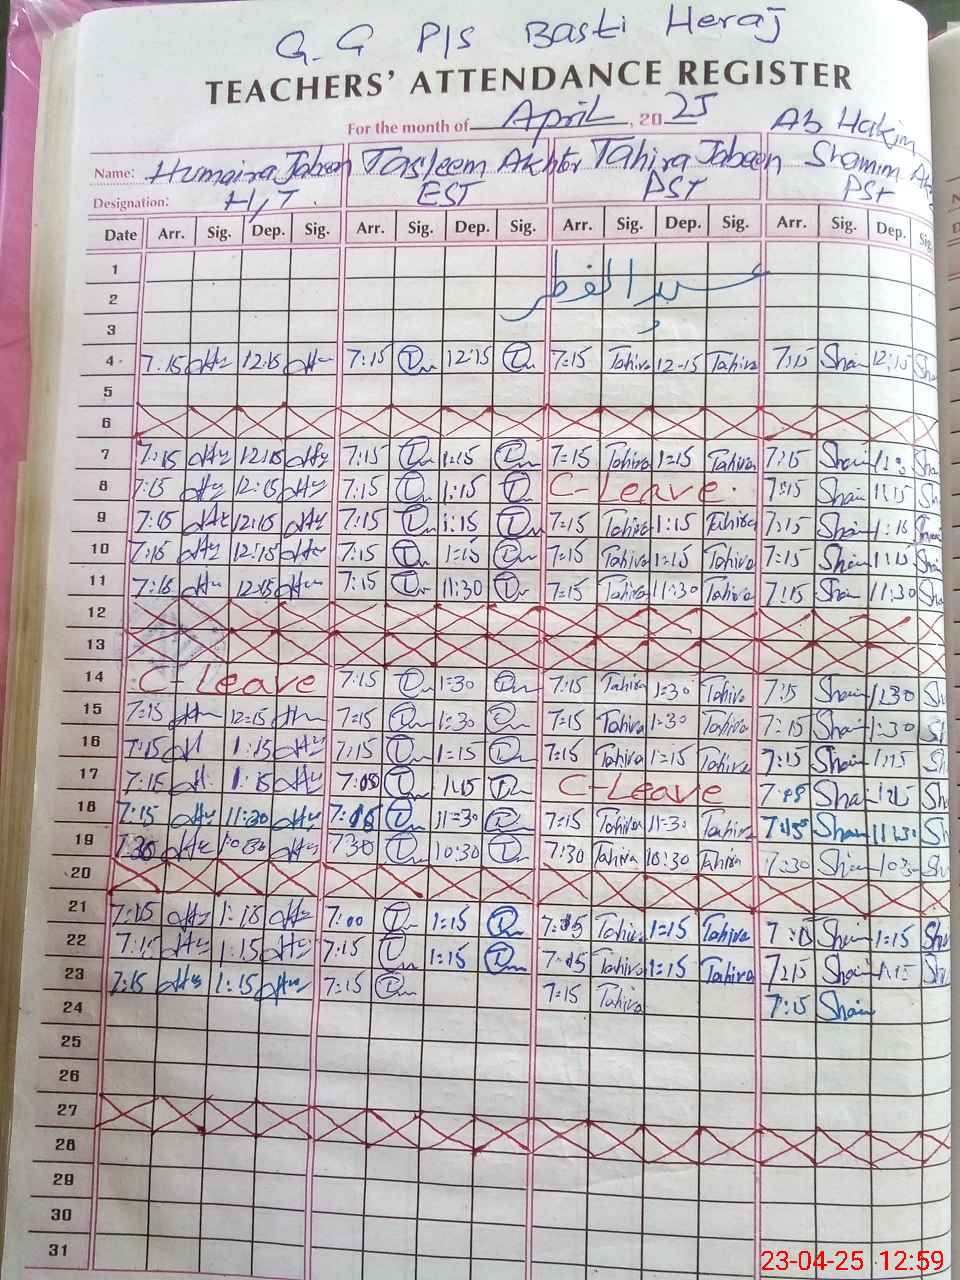 G.G P/S Basti Heraj
TEACHERS' ATTENDANCE REGISTER
For the month of April, 2025
Ab Hakim
Name: Humaira Jabeen Tasleem Akhtar Tahira Jabeen Shamim
Designation: H/T EST PST PST
Date Arr. Sig. Dep. Sig. Arr. Sig. Dep. Sig. Arr. Sig. Dep. Sig. Arr. Sig. Dep. Sig.
1
2 عيد الفطر
3
4 7:15 12:15 7:15 12:15 7=15 Tahira 12-15 Tahira 7:15 Sham 12:15 Sha
5
6
7 7:15 12:15 7:15 1:15 7=15 Tahira 1=15 Tahira 7:15 Sham Sha
8 7:15 12:15 7:15 1:15 C-Leave. 7:15 Sham 1:15 Sh
9 7:15 12:15 7:15 1:15 7=15 Tahira 1:15 Tahira 7:15 Sham 1:15
10 7:15 12:15 7:15 1=15 7=15 Tahira 1=15 Tahira 7:15 Sham 1:15 Sha
11 7:15 12:15 7:15 11:30 7=15 Tahira 11:30 Tahira 7:15 Sham 11:30 Sha
12
13
14 C-Leave 7:15 1=30 7:15 Tahira 1:30 Tahira 7:15 Sham 1:30 Sh
15 7=15 12=15 7=15 1:30 7=15 Tahira 1=30 Tahira 7:15 Sham 1:30 Sh
16 7:15 1:15 7:15 1=15 7=15 Tahira 1=15 Tahira 7:15 Sham 1:15 Sh
17 7:15 1:15 1:15 C-Leave Sham Sh
18 7:15 11:30 7:15 11=30 7=15 Tahira 11=30 Tahira 7:15 Sham 11:30 Sh
19 7:30 7:30 10:30 7:30 Tahira 10:30 Tahira 7:30 Sham 10:30 Sh
20
21 7:15 1:15 7:00 1:15 7:15 Tahira 1:15 Tahira 7:15 Sham 1:15 Sha
22 7:15 1:15 7:15 1:15 7:15 Tahira 1:15 Tahira 7:15 Sham 1:15 Sha
23 7:15 1:15 7:15 7:15 Tahira 7:15 Sham
24
25
26
27
28
29
30
31
23-04-25 12:59